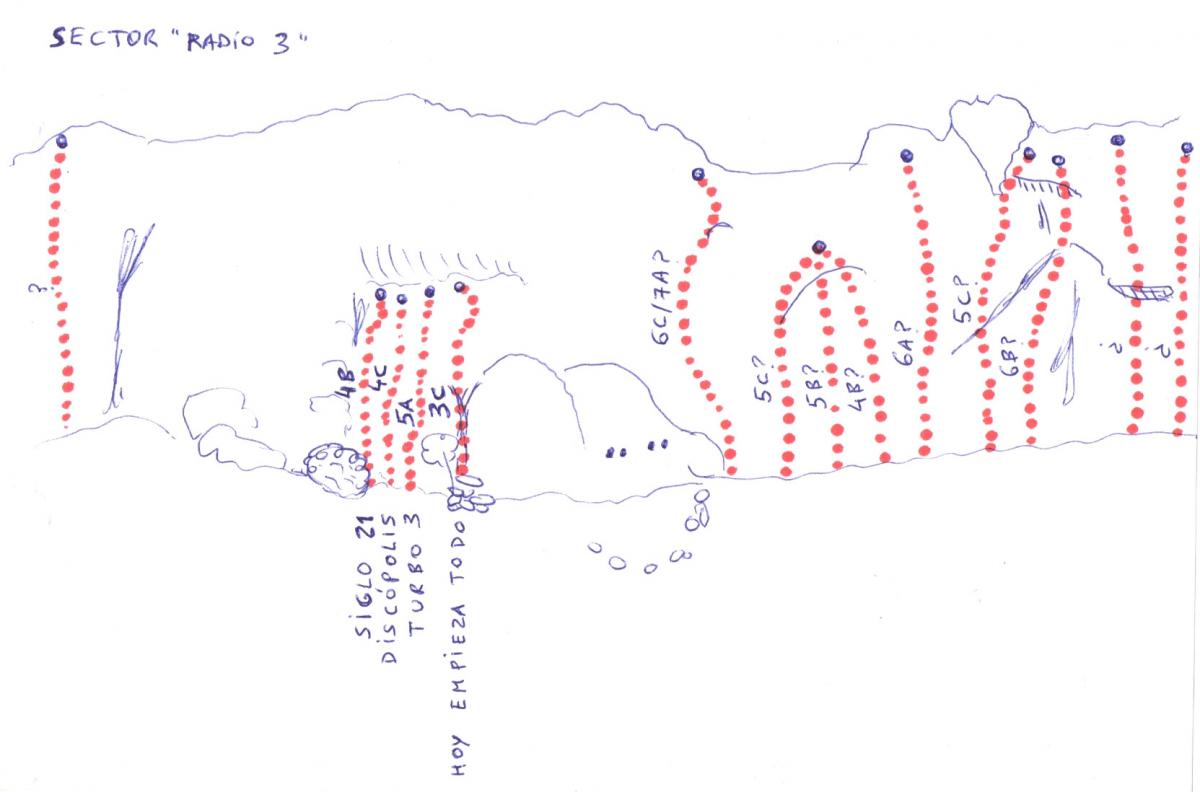 SECTOR "RADIO 3"
?
4B
4C
5A
3C
6C/7A?
5C?
5B?
4B?
6A?
5C?
6B?
?
?
SIGLO 21
DISCÓPOLIS
TURBO 3
HOY EMPIEZA TODO